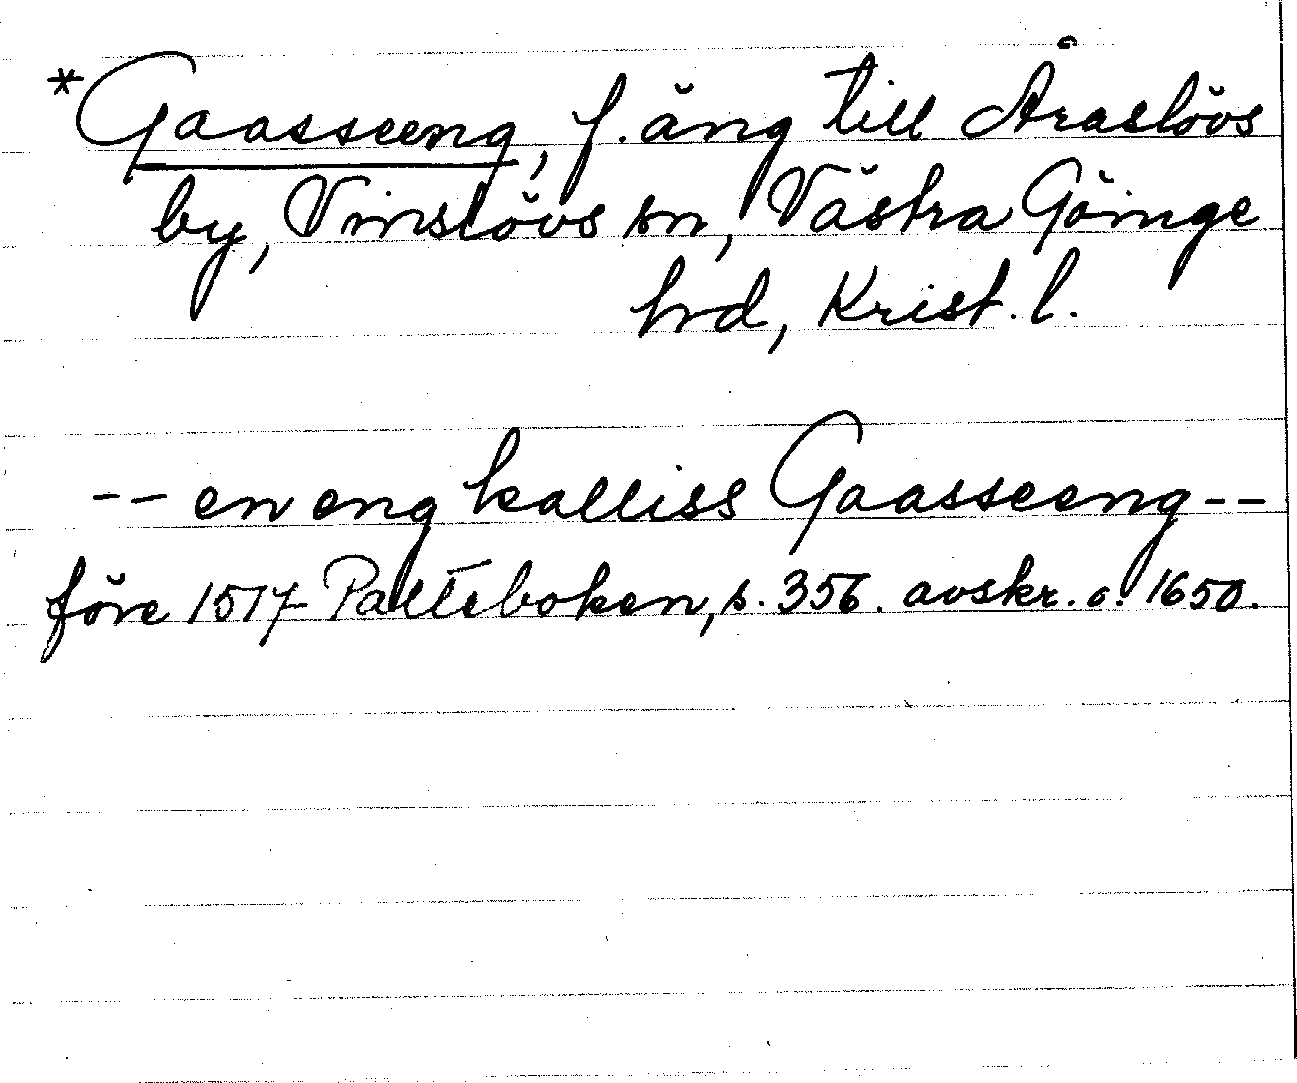 *Gaasseeng, f. äng till Åraslövs
by, Vinslövs sn, Västra Göinge
hrd, Krist. l.
-- en eng kalliss Gaasseeng --
före 1517 Palteboken, s. 356. avskr. c. 1650.